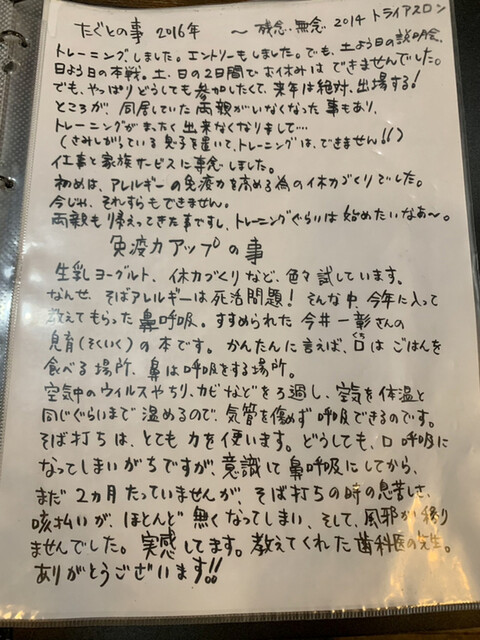 たぐとの事 2016年 〜残念.無念 2014 トライアスロン
トレーニングしました。エントリーもしました。でも、土よう日の説明会、
日よう日の本戦。土・日の2日間でお休みはできませんでした。
でも、やっぱりどうしても参加したくて、来年は絶対、出場する!
ところが、同居していた両親がいなくなった事もあり、
トレーニングがまったく出来なくなりまして…
(さみしがっている息子を置いて、トレーニングは、できません!!)
仕事と家族サービスに専念しました。
初めは、アレルギーの免疫力を高める為の体力づくりでした。
今じゃ、それすらもできません。
両親も帰えってきた事ですし、トレーニングぐらいは始めたいなあ〜。
免疫力アップの事
生乳ヨーグルト、体力づくりなど、色々試しています。
なんせ、そばアレルギーは死活問題! そんな中、今年に入って
教えてもらった鼻呼吸。すすめられた今井一彰さんの
息育(そくいく)の本です。かんたんに言えば、口(くち)はごはんを
食べる場所、鼻は呼吸をする場所。
空気中のウィルスやちり、カビなどをろ過し、空気を体温と
同じぐらいまで温めるので、気管を傷めず呼吸できるのです。
そば打ちは、とても力を使います。どうしても、口呼吸に
なってしまいがちですが、意識して鼻呼吸にしてから、
まだ2カ月たっていませんが、そば打ちの時の息苦しさ、
咳払いが、ほとんど無くなってしまい、そして、風邪が移り
ませんでした。実感してます。教えてくれた歯科医の先生。
ありがとうございます!!